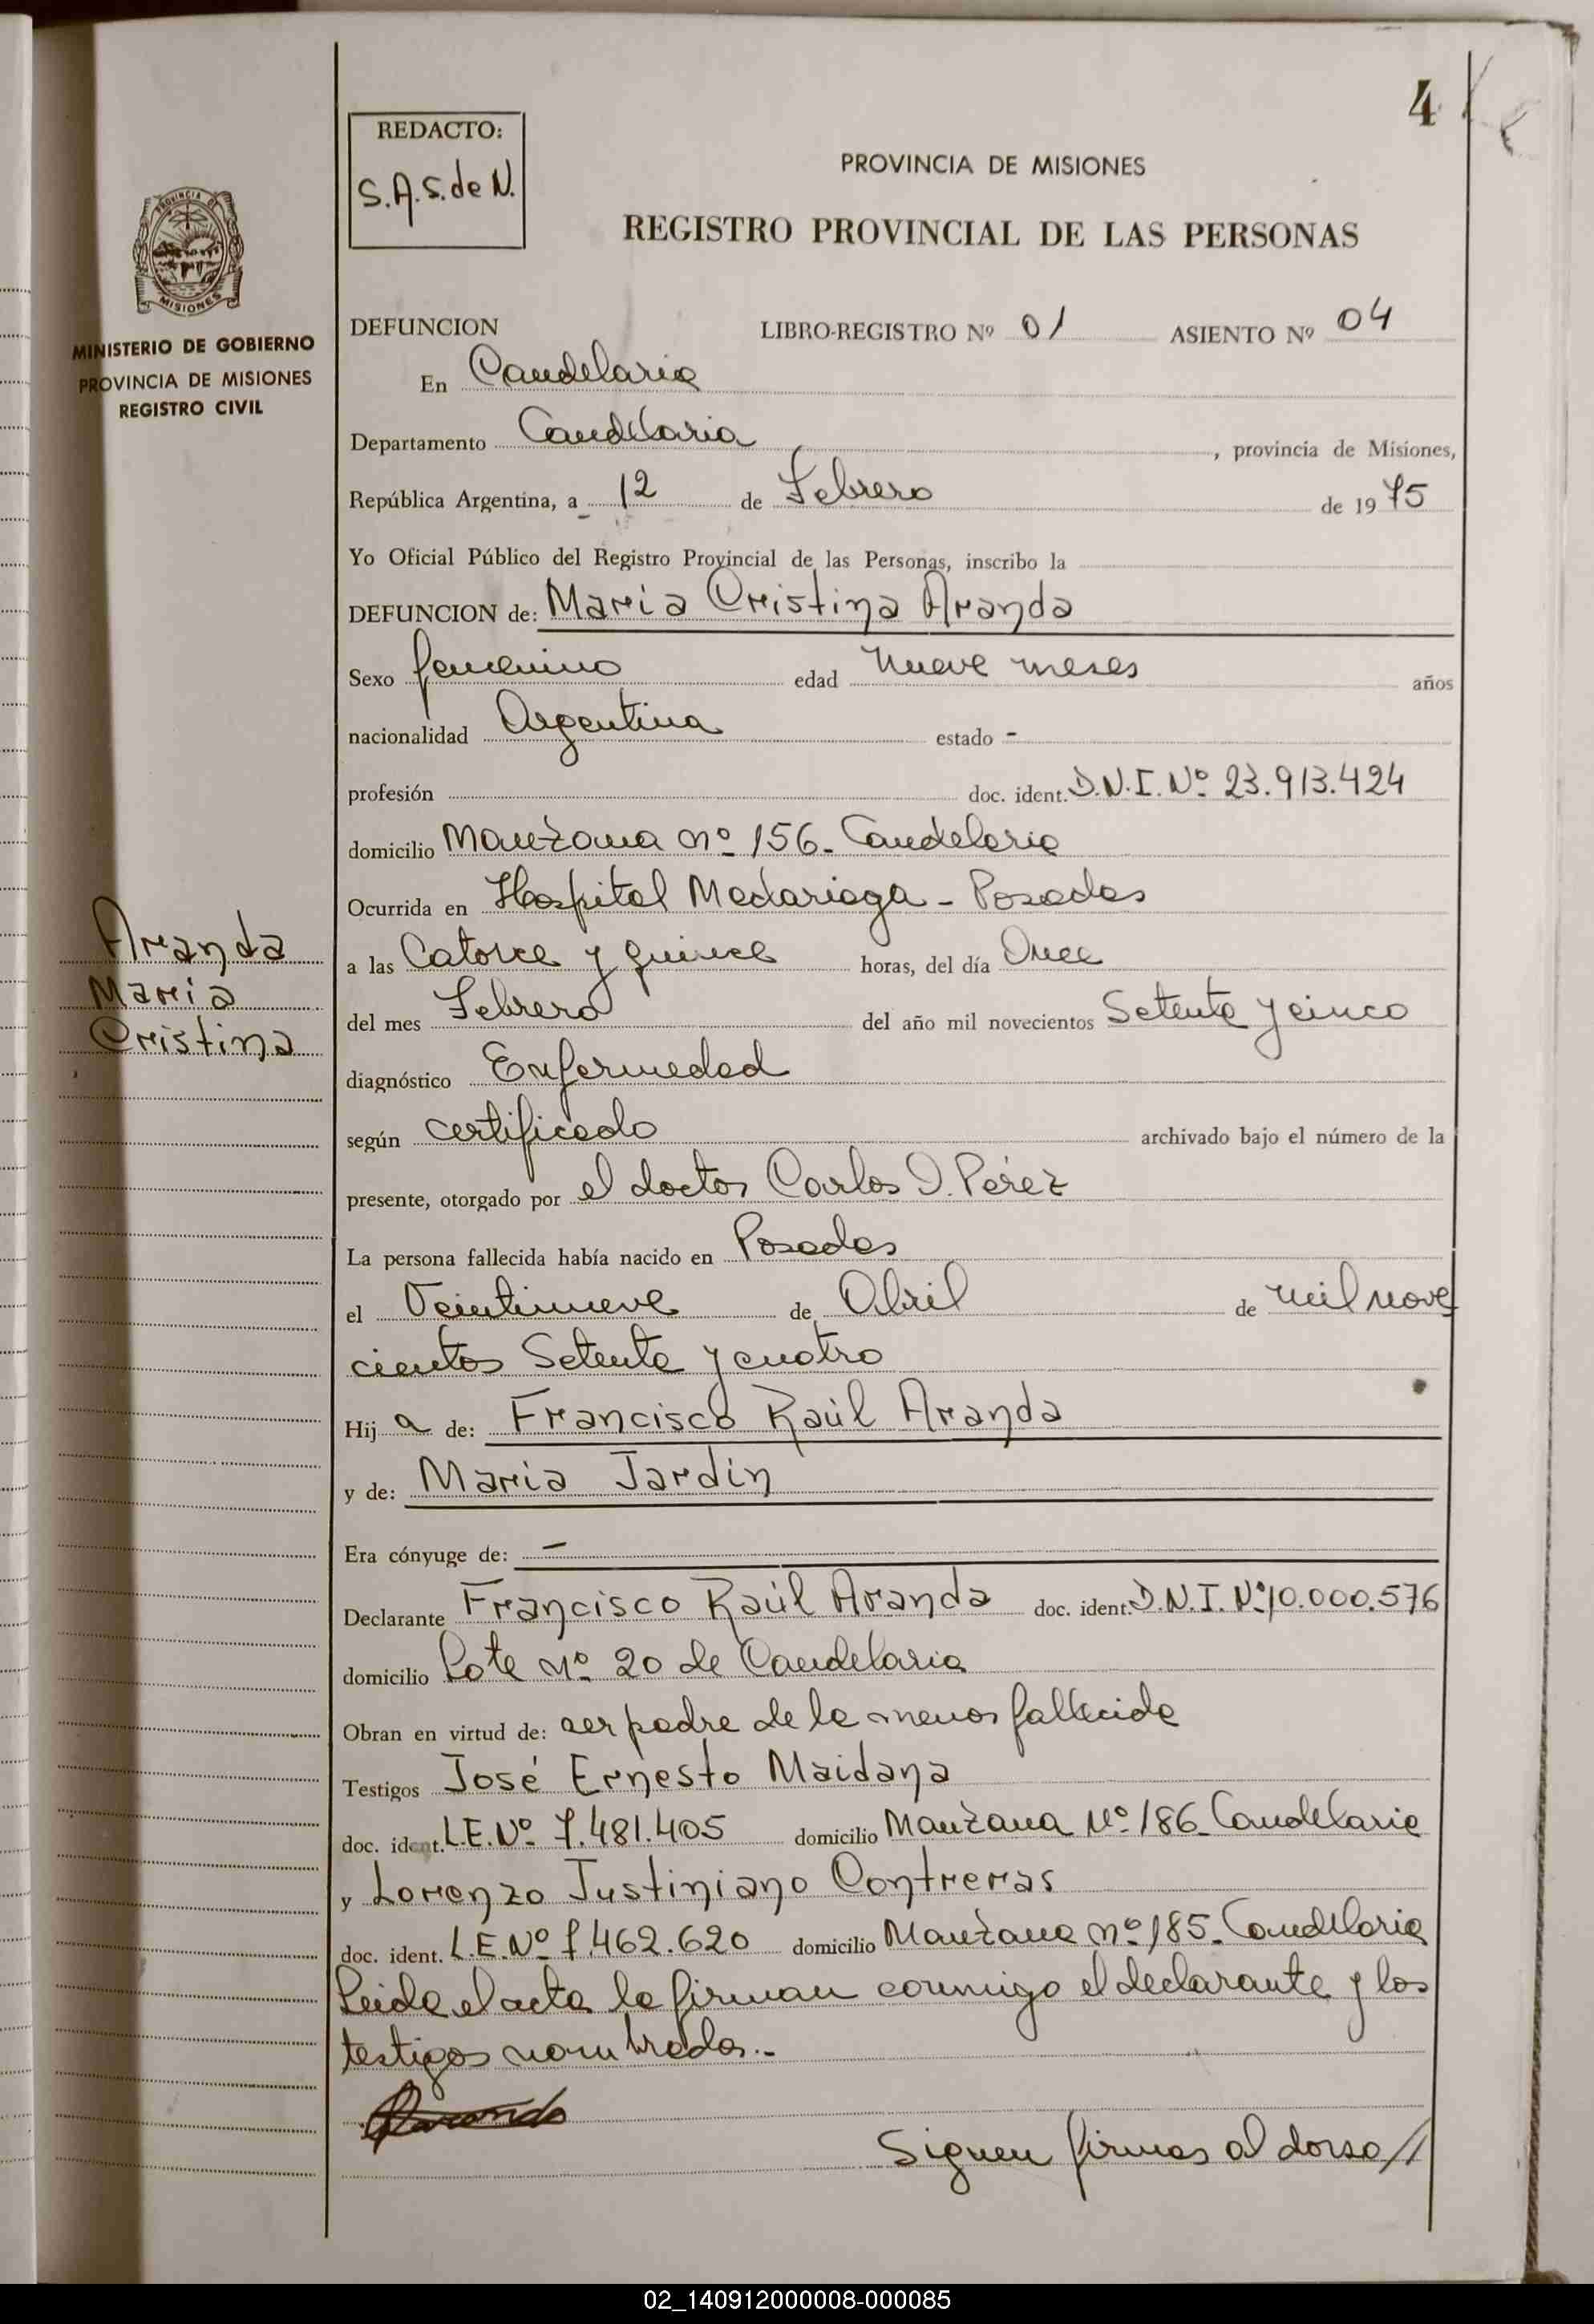 4
REDACTO:
S.A.S. de N.
PROVINCIA DE MISIONES
REGISTRO PROVINCIAL DE LAS PERSONAS
PROVINCIA DE
MISIONES
MINISTERIO DE GOBIERNO
PROVINCIA DE MISIONES
REGISTRO CIVIL
DEFUNCION LIBRO-REGISTRO Nº 01 ASIENTO Nº 04
En Candelaria
Departamento Candelaria, provincia de Misiones,
República Argentina, a 12 de Febrero de 1975
Yo Oficial Público del Registro Provincial de las Personas, inscribo la
DEFUNCION de: Maria Cristina Aranda
Sexo femenino edad nueve meses años
nacionalidad Argentina estado -
profesión doc. ident. D.N.I. Nº 23.913.424
domicilio Manzana nº 156- Candelaria
Ocurrida en Hospital Madariaga - Posadas
a las Catorce y quince horas, del día Once
del mes Febrero del año mil novecientos Setenta y cinco
diagnóstico Enfermedad
según certificado archivado bajo el número de la
presente, otorgado por el doctor Carlos I. Pérez
La persona fallecida había nacido en Posadas
el Veintinueve de Abril de mil nove
cientos Setenta y cuatro
Hij a de: Francisco Raúl Aranda
y de: Maria Jardin
Era cónyuge de: -
Declarante Francisco Raúl Aranda doc. ident. D.N.I. Nº 10.000.576
domicilio Lote nº 20 de Candelaria
Obran en virtud de: ser padre de la menor fallecida
Testigos José Ernesto Maidana
doc. ident. L.E. Nº 7.481.405 domicilio Manzana Nº 186- Candelaria
y Lorenzo Justiniano Contreras
doc. ident. L.E. Nº 7.462.620 domicilio Manzana nº 185- Candelaria
Leida el acta la firman conmigo el declarante y los
testigos nombrados.-
Siguen firmas al dorso //
Aranda
Maria
Cristina
02_140912000008-000085